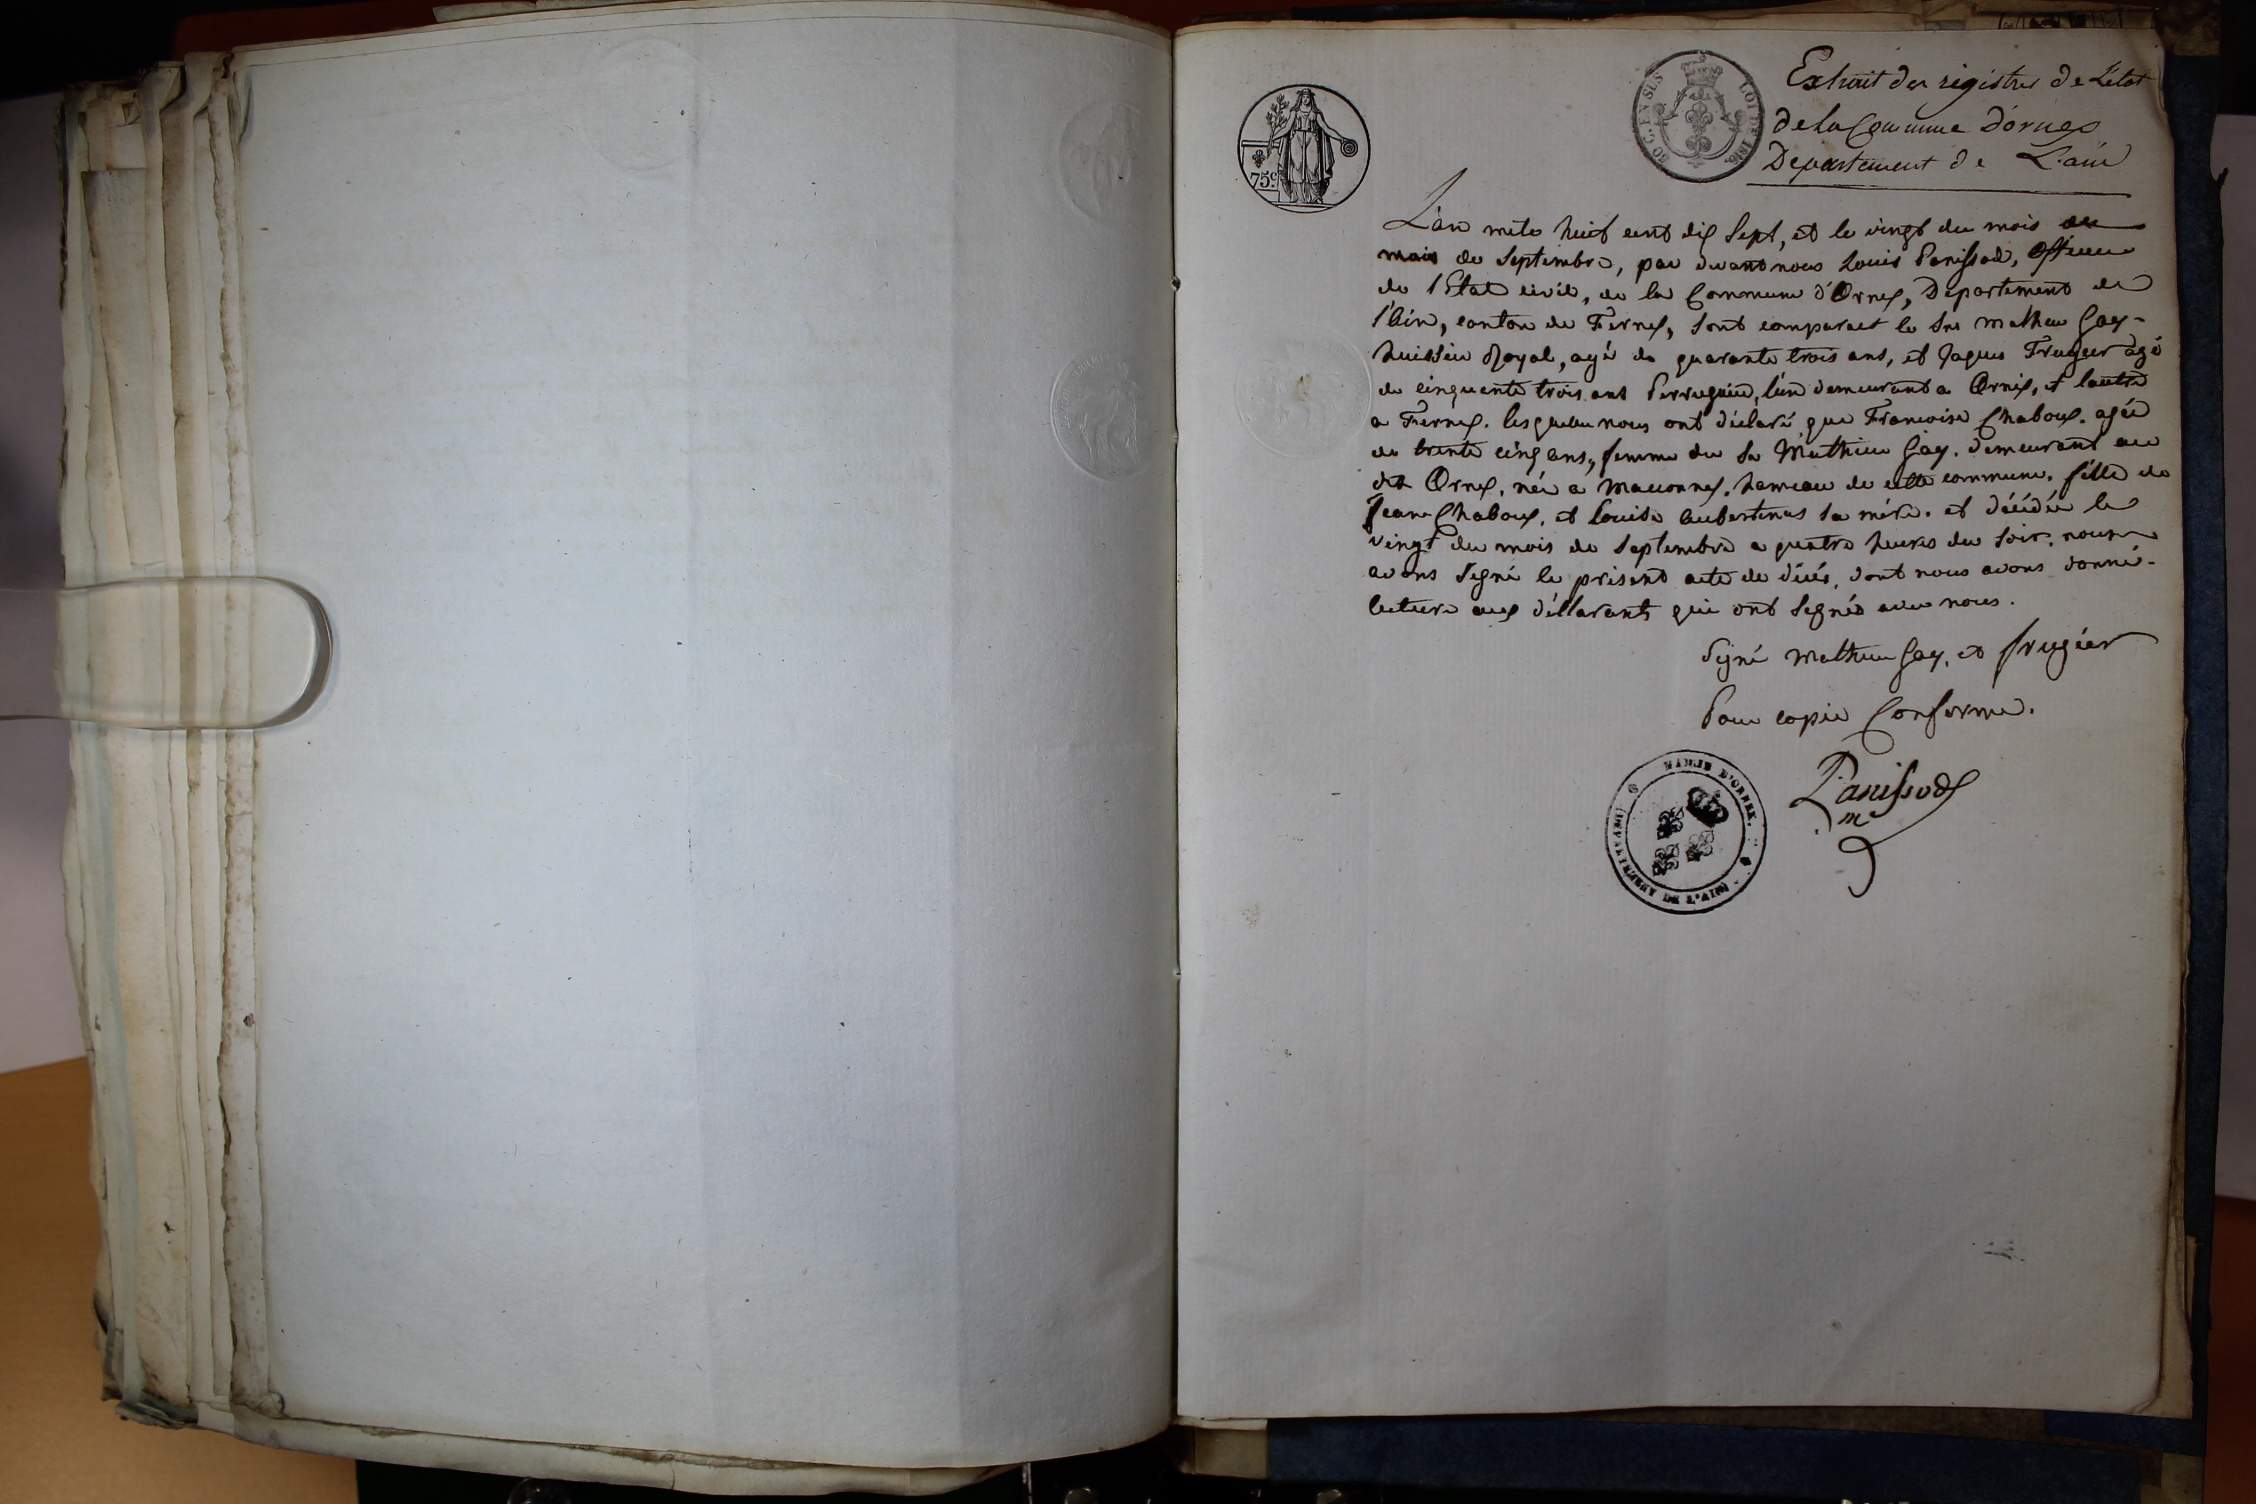 75 c.
30 C. EN SUS LOI DE 1816.
Extrait des régistres de L'état
de la Commune d'ornex
Département de L'ain
L'an mile huit cent dix sept, et le vingt du mois de
mois de septembre, par devant nous Louis Panissod, Officier
de l'Etat civil, de la Commune d'Ornex, Departement de
l'Ain, canton de Fernex, sont comparait le Sr Mathieu Gay
huissier Royal, agé de quarante trois ans, et Jaques Frugier agé
de cinquante trois ans Perruquier, l'un demeurant a Ornex, et lautre
a Fernex. lesquels nous ont déclaré que Francoise Chaboux. agée
de trente cinq ans, femme du Sr Mathieu Gay. demeurant au
dit Ornex, née a Maconnex. hameau de cette commune. fille de
Jean Chaboux, et Louise sa mére. et décédée le
vingt du mois de septembre a quatre heures du soir. nous
avons signé le présent acte de décés, dont nous avons donné
lecture aux déclarants qui ont signés avec nous.
Signé Mathieu Gay, et frugier
Pour copie Conforme.
Panissod
me
MAIRIE D'ORNEX.
(DEPARTEMENT DE L'AIN)